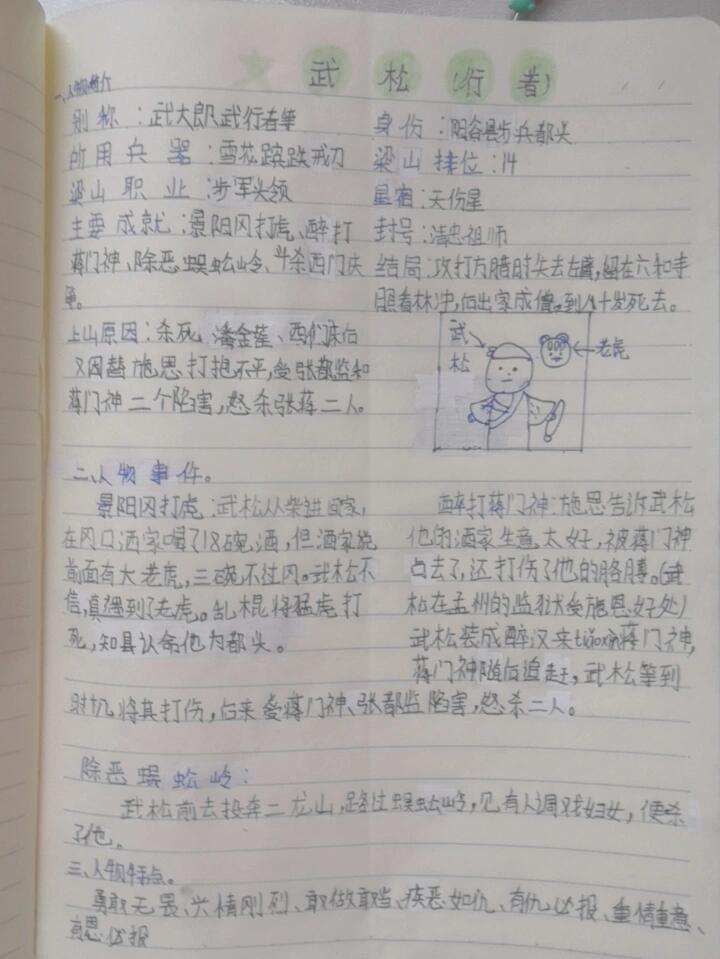 武松(行者)
一、人物简介
别称:武大郎、武行者等
所用兵器:雪花镔铁戒刀
梁山职业:步军头领
主要成就:景阳冈打虎、醉打
蒋门神、除恶蜈蚣岭、斗杀西门庆
等。
上山原因:杀死潘金莲、西门庆后
又因替施恩打抱不平,受张都监和
蒋门神二个陷害,怒杀张蒋二人。
身份:阳谷县步兵都头
梁山排位:14
星宿:天伤星
封号:清忠祖师
结局:攻打方腊时失去左臂,留在六和寺
照看林冲,后出家成僧。到八十岁死去。
武松
老虎
二、人物事件。
景阳冈打虎:武松从柴进回家,
在冈口酒家喝了18碗酒,但酒家说
前面有大老虎,三碗不过冈。武松不
信,真遇到了老虎。乱棍将猛虎打
死,知县认命他为都头。
醉打蒋门神:施恩告诉武松
他的酒家生意太好,被蒋门神
占去了,还打伤了他的胳膊。(武
松在孟州的监狱受施恩好处)
武松装成醉汉来tiáoxìn蒋门神,
蒋门神随后追赶,武松等到
时机将其打伤,后来受蒋门神、张都监陷害,怒杀二人。
除恶蜈蚣岭:
武松前去投奔二龙山,路过蜈蚣岭,见有人调戏妇女,便杀
了他。
三、人物特点。
勇敢无畏、性情刚烈、敢做敢当、疾恶如仇、有仇必报、重情重意、
有恩必报